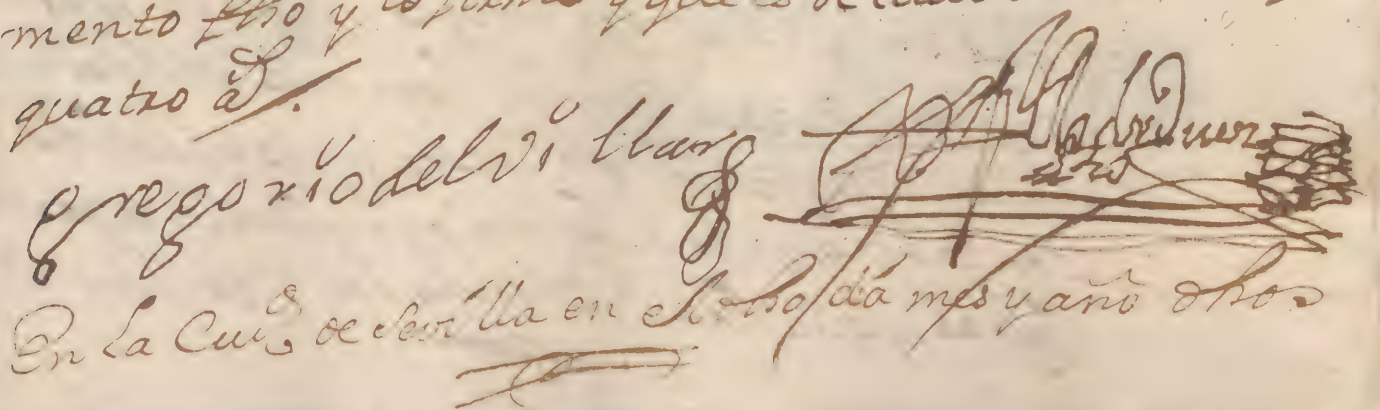 mento fho y lo firmo y que es de
quatro as.
gregorio del Villar
En La Ciud de Sevilla en el dho dia mes y año dhos